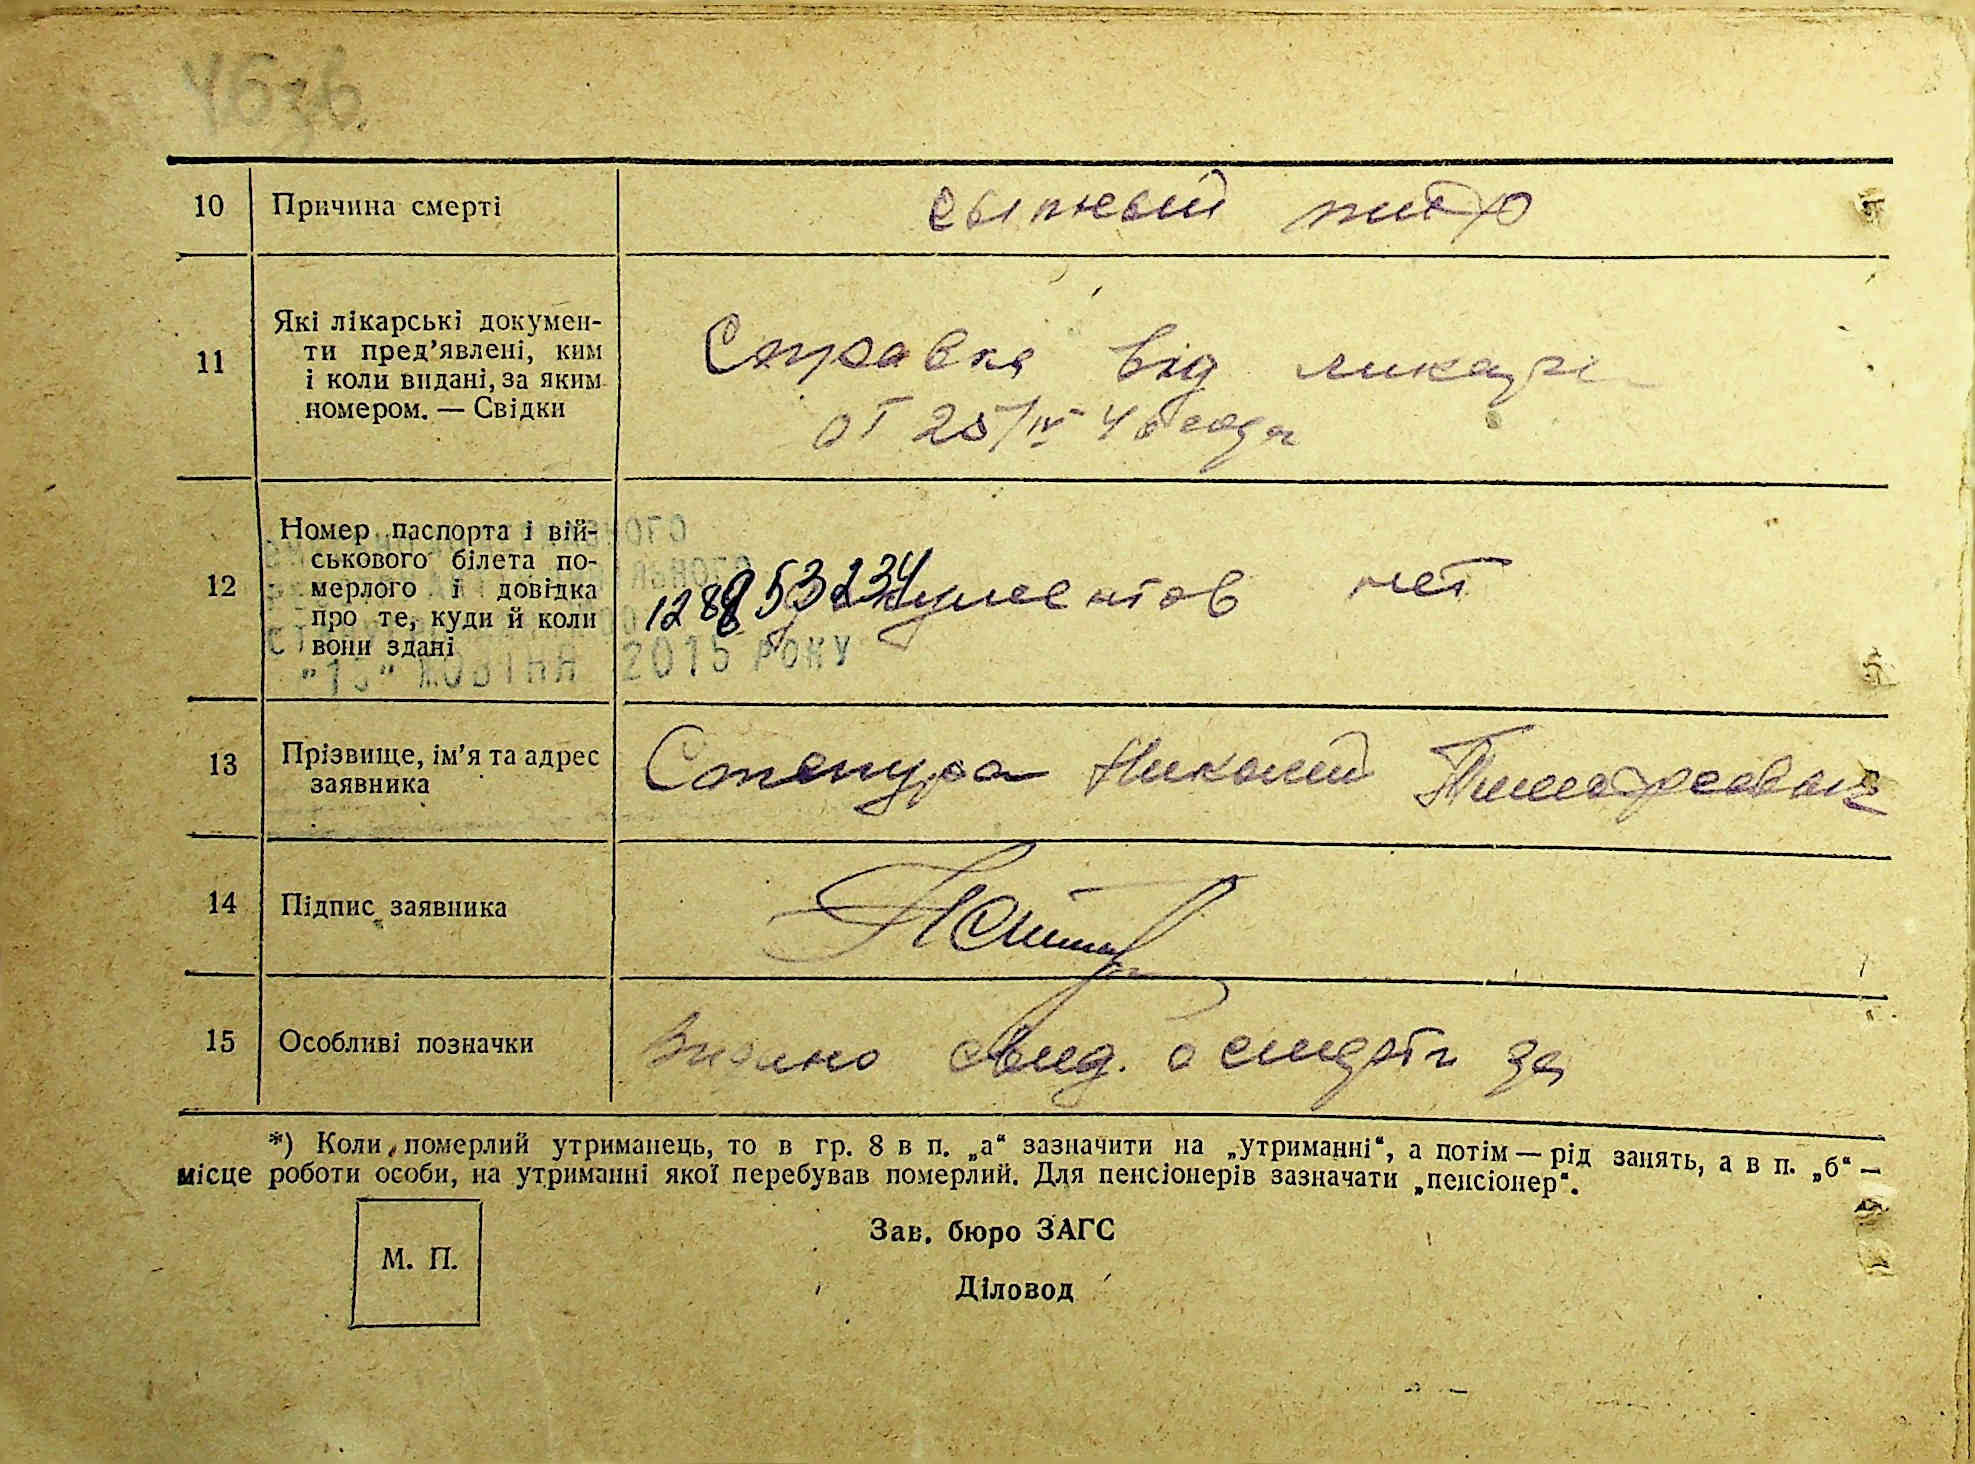 10 Причина смерті сыпной тиф
11 Які лікарські докумен-
ти пред’явлені, ким
і коли видані, за яким
номером. — Свідки
Справка від ликаря
от 25/IV 46 года
12 Номер паспорта і вій-
ськового білета по-
мерлого і довідка
про те, куди й коли
вони здані
документов нет
2015 РОКУ
13 Прізвище, ім’я та адрес
заявника
Степура Николай Тимофеевич
14 Підпис заявника
15 Особливі позначки
Видано свид. о смерти за
*) Коли померлий утриманець, то в гр. 8 в п. „а“ зазначити на „утриманні“, а потім — рід занять, а в п. „б“ —
місце роботи особи, на утриманні якої перебував померлий. Для пенсіонерів зазначати „пенсіонер“.
М. П.
Зав. бюро ЗАГС
Діловод